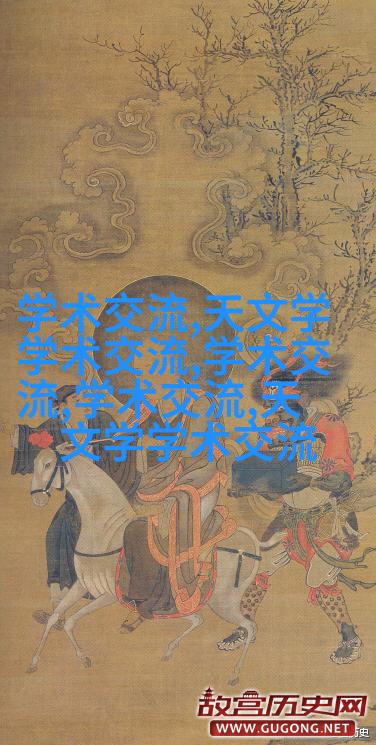 学术交流,天文学
学术交流,学术交
流,学术交流,天
文学学术交流
故宫历史网
WWW.GUGONG.NET
历史